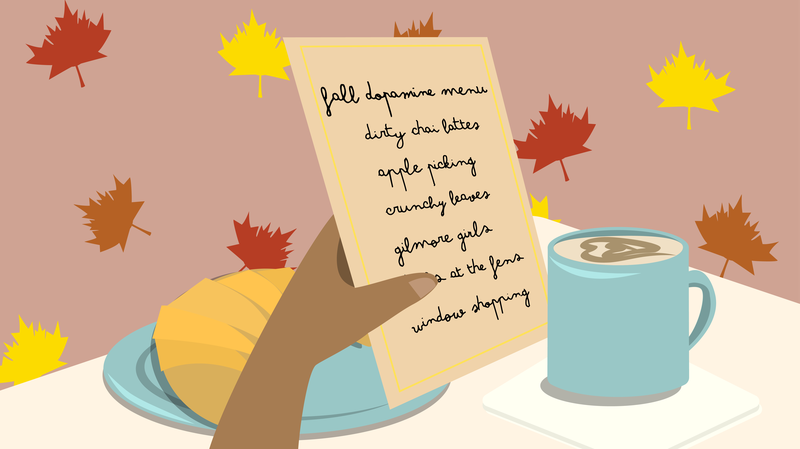 fall dopamine menu
dirty chai lattes
apple picking
crunchy leaves
gilmore girls
at the fens
window shopping